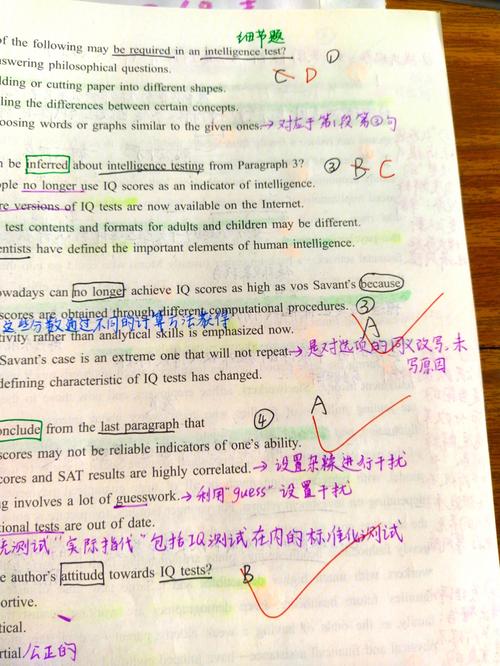 细节题
of the following may be required in an intelligence test? ①
answering philosophical questions. C D
lding or cutting paper into different shapes.
ling the differences between certain concepts.
oosing words or graphs similar to the given ones. → 对应于第1段第③句
n be inferred about intelligence testing from Paragraph 3? ② B C
ople no longer use IQ scores as an indicator of intelligence.
re versions of IQ tests are now available on the Internet.
test contents and formats for adults and children may be different.
entists have defined the important elements of human intelligence.
owadays can no longer achieve IQ scores as high as vos Savant's because
scores are obtained through different computational procedures. ③
这些分数通过不同的计算方法获得 A
tivity rather than analytical skills is emphasized now.
Savant's case is an extreme one that will not repeat. → 是对选项的同义改写,未
写原因
defining characteristic of IQ tests has changed.
onclude from the last paragraph that ④ A
scores may not be reliable indicators of one's ability.
cores and SAT results are highly correlated. → 设置杂糅进行干扰
ng involves a lot of guesswork. → 利用"guess"设置干扰
tional tests are out of date.
统测试"实际指代"包括IQ测试在内的标准化测试
e author's attitude towards IQ tests? B
ortive.
tical.
rtial 公正的